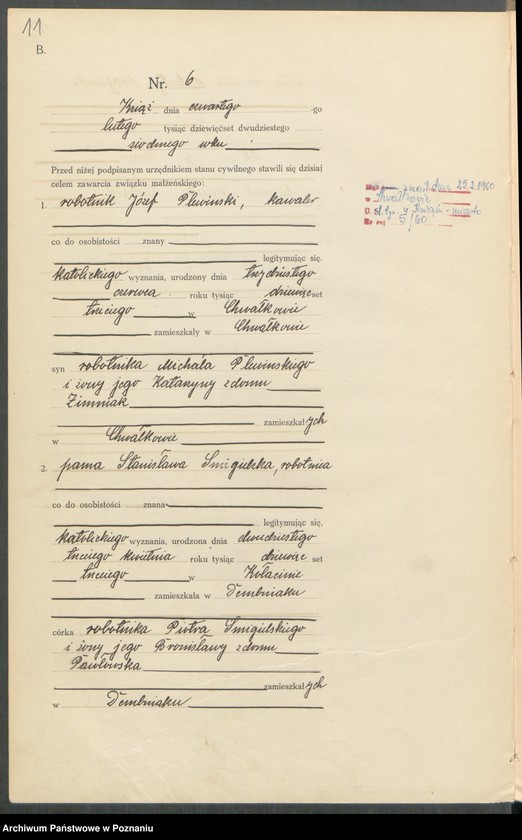 11
B.
Nr. 6
Książ dnia czwartego go
lutego tysiąc dziewięćset dwudziestego
siódmego roku
Przed niżej podpisanym urzędnikiem stanu cywilnego stawili się dzisiaj
celem zawarcia związku małżeńskiego:
1. robotnik Józef Plewinski, kawaler
co do osobistości znany
legitymując się,
katolickiego wyznania, urodzony dnia trzydziestego
czerwca roku tysiąc dziewięćset
trzeciego w Chwałkowie
zamieszkały w Chwałkowie
syn robotnika Michała Plewinskiego
i żony jego Katarzyny z domu
Zimniak
zamieszkałych
w Chwałkowie
2. panna Stanisława Smigielska, robotnica
co do osobistości znana
legitymując się,
katolickiego wyznania, urodzona dnia dwudziestego
trzeciego kwietnia roku tysiąc dziewięćset
trzeciego w Kołacinie
zamieszkała w Dembniaku
córka robotnika Piotra Smigielskiego
i żony jego Bronisławy z domu
Pawłowska
zamieszkałych
w Dembniaku
zmarł dnia 25.2.1960
w Chwałkowie
U. St. Cyw. w Książu-miasto
Nr rej. 5/60
Archiwum Państwowe w Poznaniu